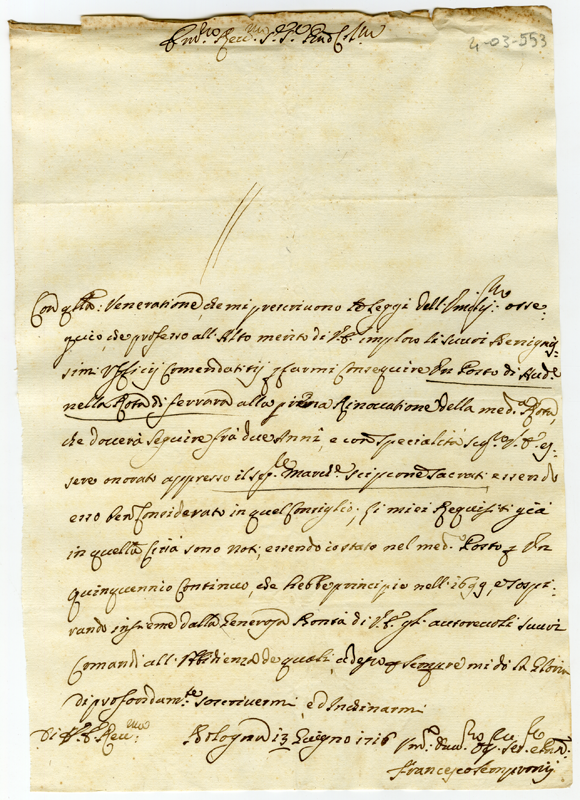 4-03-553
Con q.lla Veneratione che mi prescrivono le Leggi dell'Umiliss.mo osse=
quio, che professo all'Alto merito di V.E. imploro li suoi Benignis=
simi Ufficij Comendatitij p farmi Conseguire Un Posto di Aud.e
nella Rota di Ferrara alla prima Rinovatione della med.a Rota,
che doverà seguire frà due Anni, e con specialità V.E. es=
sere onorato appresso il Sig.re March.e Scipione Sacrati essendo
esso ben Considerato in quel Consiglio; li miei Requisiti già
in quella Città sono noti, essendo io stato nel med.o Posto p Un
quinquennio Continuo, che hebbe principio nell'1699, e sospi=
rando insieme dalla Generosa Bontà di V.E. gl'autorevoli suoi
Comandi all'Obbidienza de quali, adesso e sempre mi dò la Gloria
di profondam.te soscrivermi, ed Inchinarmi
Di V.E. Rev.ma Bologna 13 Giugno 1716
Francesco Sempronij